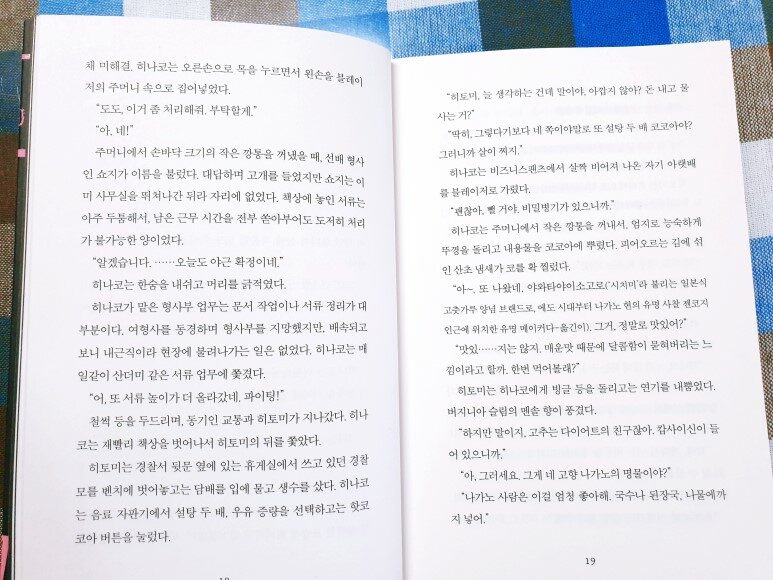 채 미해결. 히나코는 오른손으로 목을 누르면서 왼손을 블레이
저의 주머니 속으로 집어넣었다.
“도도, 이거 좀 처리해줘. 부탁할게.”
“아, 네!”
주머니에서 손바닥 크기의 작은 깡통을 꺼냈을 때, 선배 형사
인 쇼지가 이름을 불렀다. 대답하며 고개를 들었지만 쇼지는 이
미 사무실을 뛰쳐나간 뒤라 자리에 없었다. 책상에 놓인 서류는
아주 두툼해서, 남은 근무 시간을 전부 쏟아부어도 도저히 처리
가 불가능한 양이었다.
“알겠습니다. ……오늘도 야근 확정이네.”
히나코는 한숨을 내쉬고 머리를 긁적였다.
히나코가 맡은 형사부 업무는 문서 작업이나 서류 정리가 대
부분이다. 여형사를 동경하며 형사부를 지망했지만, 배속되고
보니 내근직이라 현장에 불려나가는 일은 없었다. 히나코는 매
일같이 산더미 같은 서류 업무에 쫓겼다.
“어, 또 서류 높이가 더 올라갔네. 파이팅!”
철썩 등을 두드리며, 동기인 교통과 히토미가 지나갔다. 히나
코는 재빨리 책상을 벗어나서 히토미의 뒤를 쫓았다.
히토미는 경찰서 뒷문 옆에 있는 휴게실에서 쓰고 있던 경찰
모를 벤치에 벗어놓고는 담배를 입에 물고 생수를 샀다. 히나코
는 음료 자판기에서 설탕 두 배, 우유 증량을 선택하고는 핫코
코아 버튼을 눌렀다.
“히토미, 늘 생각하는 건데 말이야. 아깝지 않아? 돈 내고 물
사는 거?”
“딱히, 그렇다기보다 네 쪽이야말로 또 설탕 두 배 코코아야?
그러니까 살이 쪄지.”
히나코는 비즈니스팬츠에서 살짝 비어져 나온 자기 아랫배
를 블레이저로 가렸다.
“괜찮아. 뺄 거야. 비밀병기가 있으니까.”
히나코는 주머니에서 작은 깡통을 꺼내서, 엄지로 능숙하게
뚜껑을 돌리고 내용물을 코코아에 뿌렸다. 피어오르는 김에 섞
인 산초 냄새가 코를 확 찔렀다.
“아~. 또 나왔네. 야와타야이소고로(‘시치미’라 불리는 일본식
고춧가루 양념 브랜드로, 에도 시대부터 나가노 현의 유명 사찰 젠코지
인근에 위치한 유명 메이커다-옮긴이). 그거, 정말로 맛있어?”
“맛있……지는 않지. 매운맛 때문에 달콤함이 묻혀버리는 느
낌이라고 할까. 한번 먹어볼래?”
히토미는 히나코에게 빙글 등을 돌리고는 연기를 내뿜었다.
버지니아 슬림의 멘솔 향이 풍겼다.
“하지만 말이지, 고추는 다이어트의 친구잖아. 캅사이신이 들
어 있으니까.”
“아, 그러세요. 그게 네 고향 나가노의 명물이야?”
“나가노 사람은 이걸 엄청 좋아해. 국수나 된장국, 나물에까
지 넣어.”
19